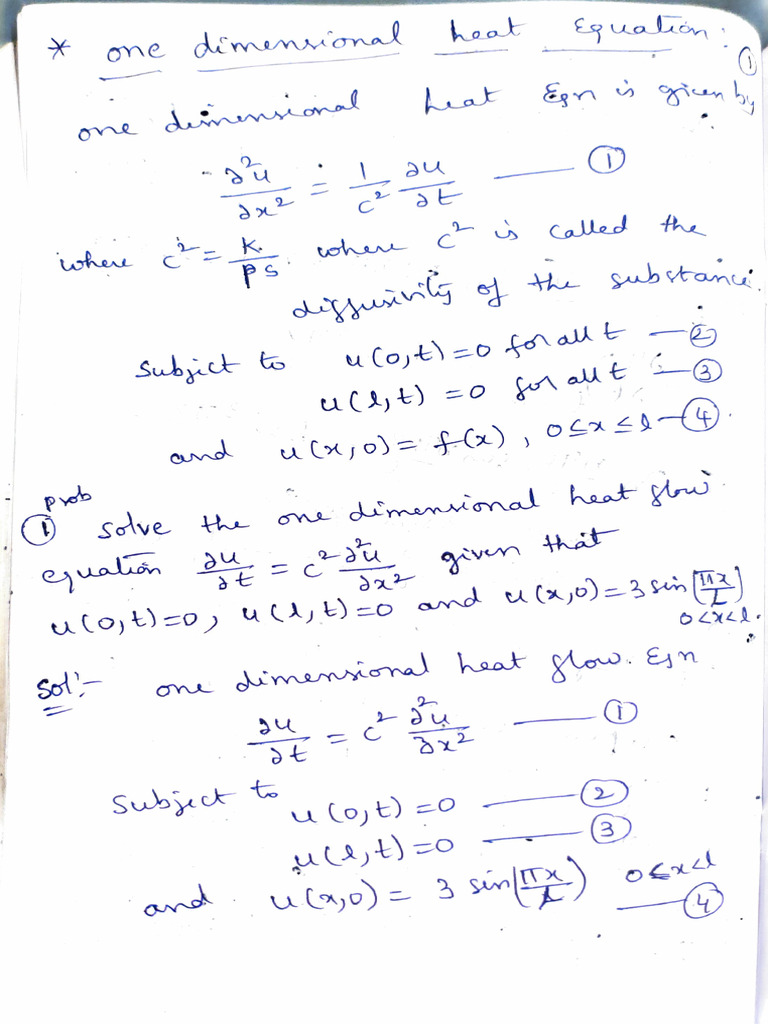 * one dimensional heat Equation:
①
one dimensional heat Eqn is given by
∂²u/∂x² = 1/c² ∂u/∂t —— ①
where c² = k/ps. where c² is called the
diffusivity of the substance.
Subject to u(0,t)=0 for all t — ②
u(l,t) = 0 for all t — ③
and u(x,0) = f(x), 0≤x≤l — ④
prob
① Solve the one dimensional heat flow
equation ∂u/∂t = c² ∂²u/∂x² given that
u(0,t)=0, u(l,t)=0 and u(x,0)=3 sin(πx/L)
0<x<l.
Sol:- one dimensional heat flow. Eqn
∂u/∂t = c² ∂²u/∂x² —— ①
Subject to
u(0,t)=0 —— ②
u(l,t)=0 —— ③
and u(x,0) = 3 sin(πx/L) 0≤x<l
—— ④